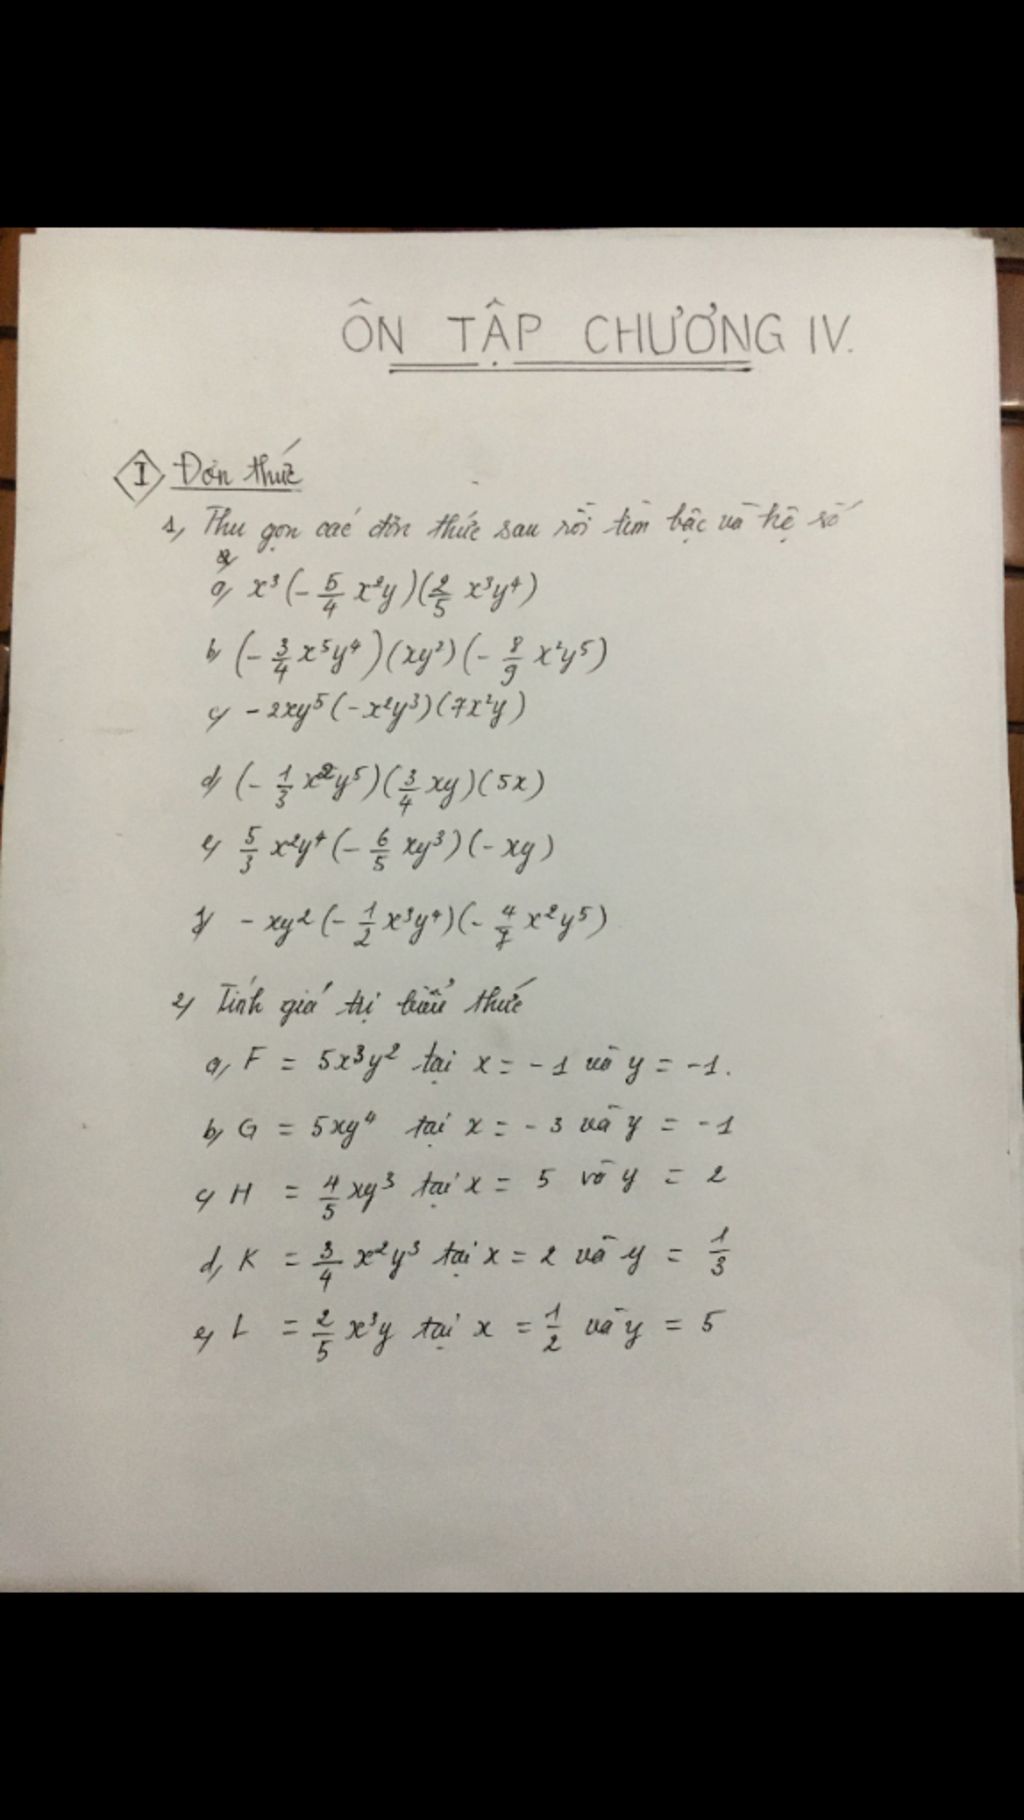 ÔN TẬP CHƯƠNG IV.
I Đơn thức
1, Thu gọn các đơn thức sau rồi tìm bậc và hệ số
a, x³(-5/4 x²y)(2/5 x³y⁴)
b, (-3/4 x⁵y⁴)(xy²)(-8/9 x²y⁵)
c, -2xy⁵(-x²y³)(7x²y)
d, (-1/3 x²y⁵)(3/4 xy)(5x)
e, 5/3 x²y⁴(-6/5 xy³)(-xy)
f, -xy²(-1/2 x³y⁴)(-4/7 x²y⁵)
2, Tính giá trị biểu thức
a, F = 5x³y² tại x = -1 và y = -1.
b, G = 5xy⁴ tại x = -3 và y = -1
c, H = 4/5 xy³ tại x = 5 và y = 2
d, K = 3/4 x²y³ tại x = 2 và y = 1/3
e, L = 2/5 x³y tại x = 1/2 và y = 5